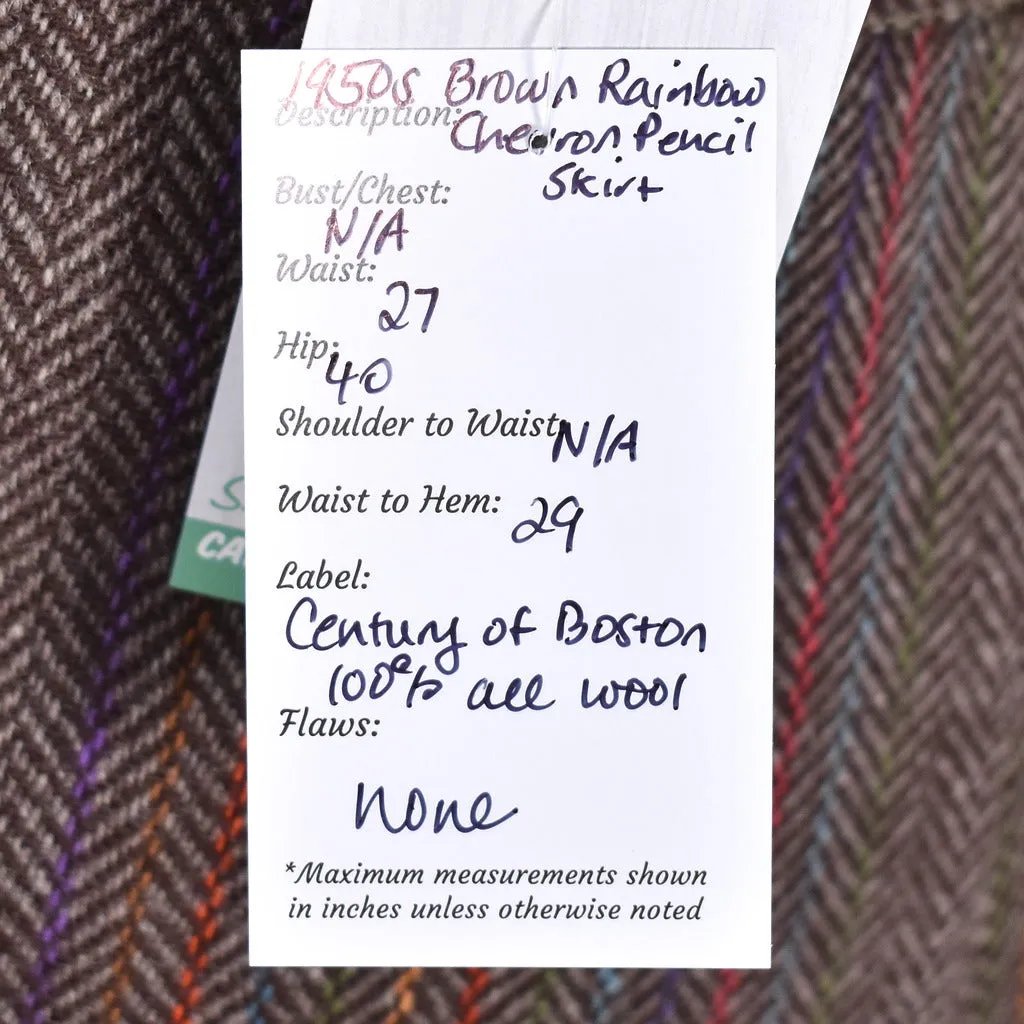 1950s Brown Rainbow
Description:
Chevron Pencil
Skirt
Bust/Chest:
N/A
Waist:
27
Hip:
40
Shoulder to Waist:
N/A
Waist to Hem:
29
Label:
Century of Boston
100% all wool
Flaws:
none
*Maximum measurements shown
in inches unless otherwise noted